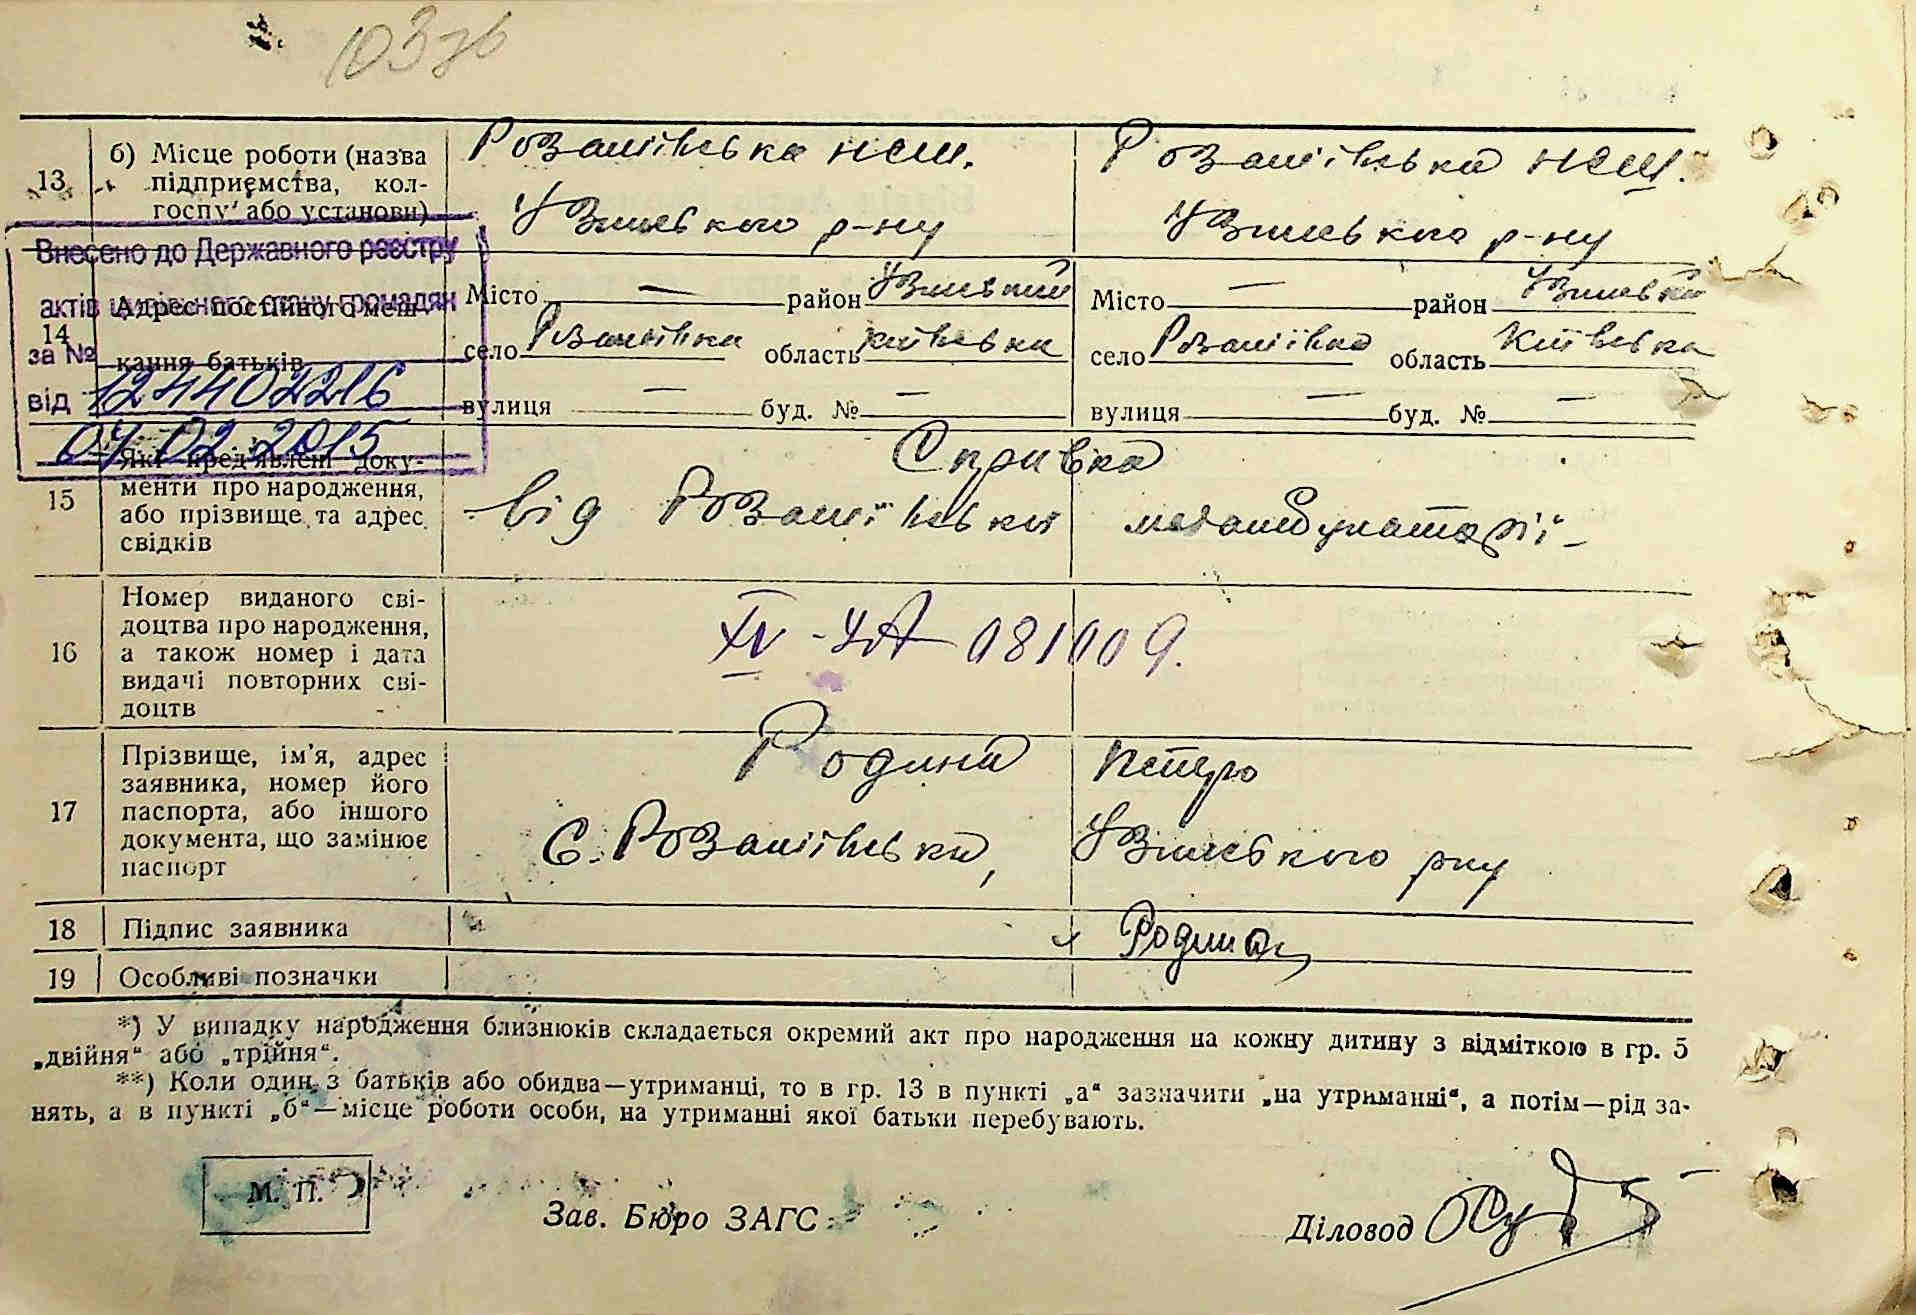 13
б) Місце роботи (назва
підприємства, кол-
госпу або установи)
Розаліївська НСШ.
Узинського р-ну
Розаліївська НСШ.
Узинського р-ну
Внесено до Державного реєстру
актів цивільного стану громадян
за №
від 1244402216
07.02.2015
14
Адрес постійного меш-
кання батьків
Місто — район Узинський
село Розаліївка область Київська
вулиця — буд. № —
Місто — район Узинський
село Розаліївка область Київська
вулиця — буд. № —
15
Які пред'явлені доку-
менти про народження,
або прізвище та адрес
свідків
Справка
від Розаліївської медамбулаторії
16
Номер виданого сві-
доцтва про народження,
а також номер і дата
видачі повторних сві-
доцтв
IV-УА 081009.
17
Прізвище, ім'я, адрес
заявника, номер його
паспорта, або іншого
документа, що замінює
паспорт
Родина Петро
с. Розаліївка, Узинського р-ну
18
Підпис заявника
Родина
19
Особливі позначки
*) У випадку народження близнюків складається окремий акт про народження на кожну дитину з відміткою в гр. 5
„двійня“ або „трійня“.
**) Коли один з батьків або обидва—утриманці, то в гр. 13 в пункті „а“ зазначити „на утриманні“, а потім—рід за-
нять, а в пункті „б“—місце роботи особи, на утриманні якої батьки перебувають.
М. П.
Зав. Бюро ЗАГС
Діловод